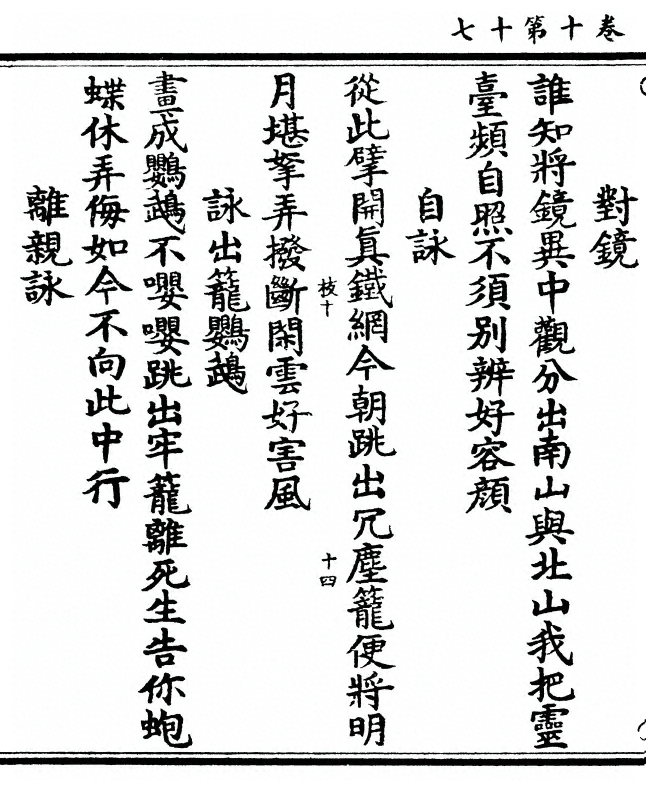 卷十第十七
對鏡
誰知將鏡異中觀分出南山與北山我把靈
臺頻自照不須別辨好容顔
自詠
從此擘開眞鐵網今朝跳出冗塵籠便將明
枝十 十四
月堪拏弄撥斷閑雲好害風
詠出籠鸚鵡
畫成鸚鵡不嚶嚶跳出牢籠離死生告你蚫
蝶休弄侮如今不向此中行
離親詠